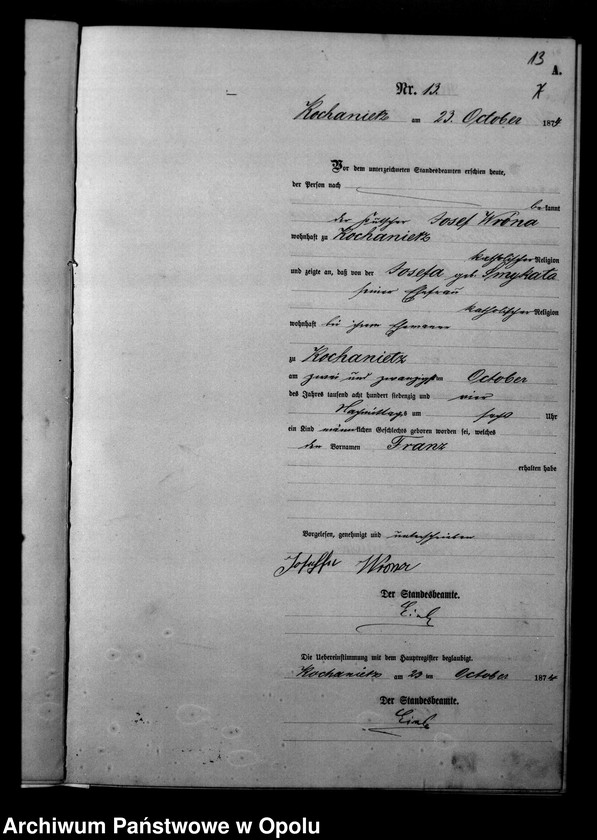 13
A.
Nr. 13.
Kochanietz am 23. October 1874
Vor dem unterzeichneten Standesbeamten erschien heute,
der Person nach
bekannt
der Kutscher Josef Wrona
wohnhaft zu Kochanietz
katholischer Religion
und zeigte an, daß von der Josefa geb. Smykata
seiner Ehefrau
katholischer Religion
wohnhaft bei ihrem Ehemanne
zu Kochanietz
am zwei und zwanzigsten October
des Jahres tausend acht hundert siebenzig und vier
Nachmittags um sechs Uhr
ein Kind männlichen Geschlechts geboren worden sei, welches
den Vornamen Franz
erhalten habe
Vorgelesen, genehmigt und unterschrieben
Wrona
Der Standesbeamte.
Die Uebereinstimmung mit dem Hauptregister beglaubigt.
Kochanietz am 23 ten October 1874
Der Standesbeamte.
Archiwum Państwowe w Opolu